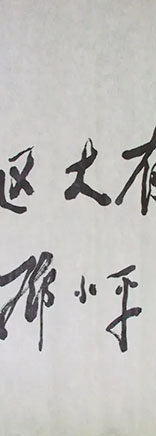 区大有
邓小平